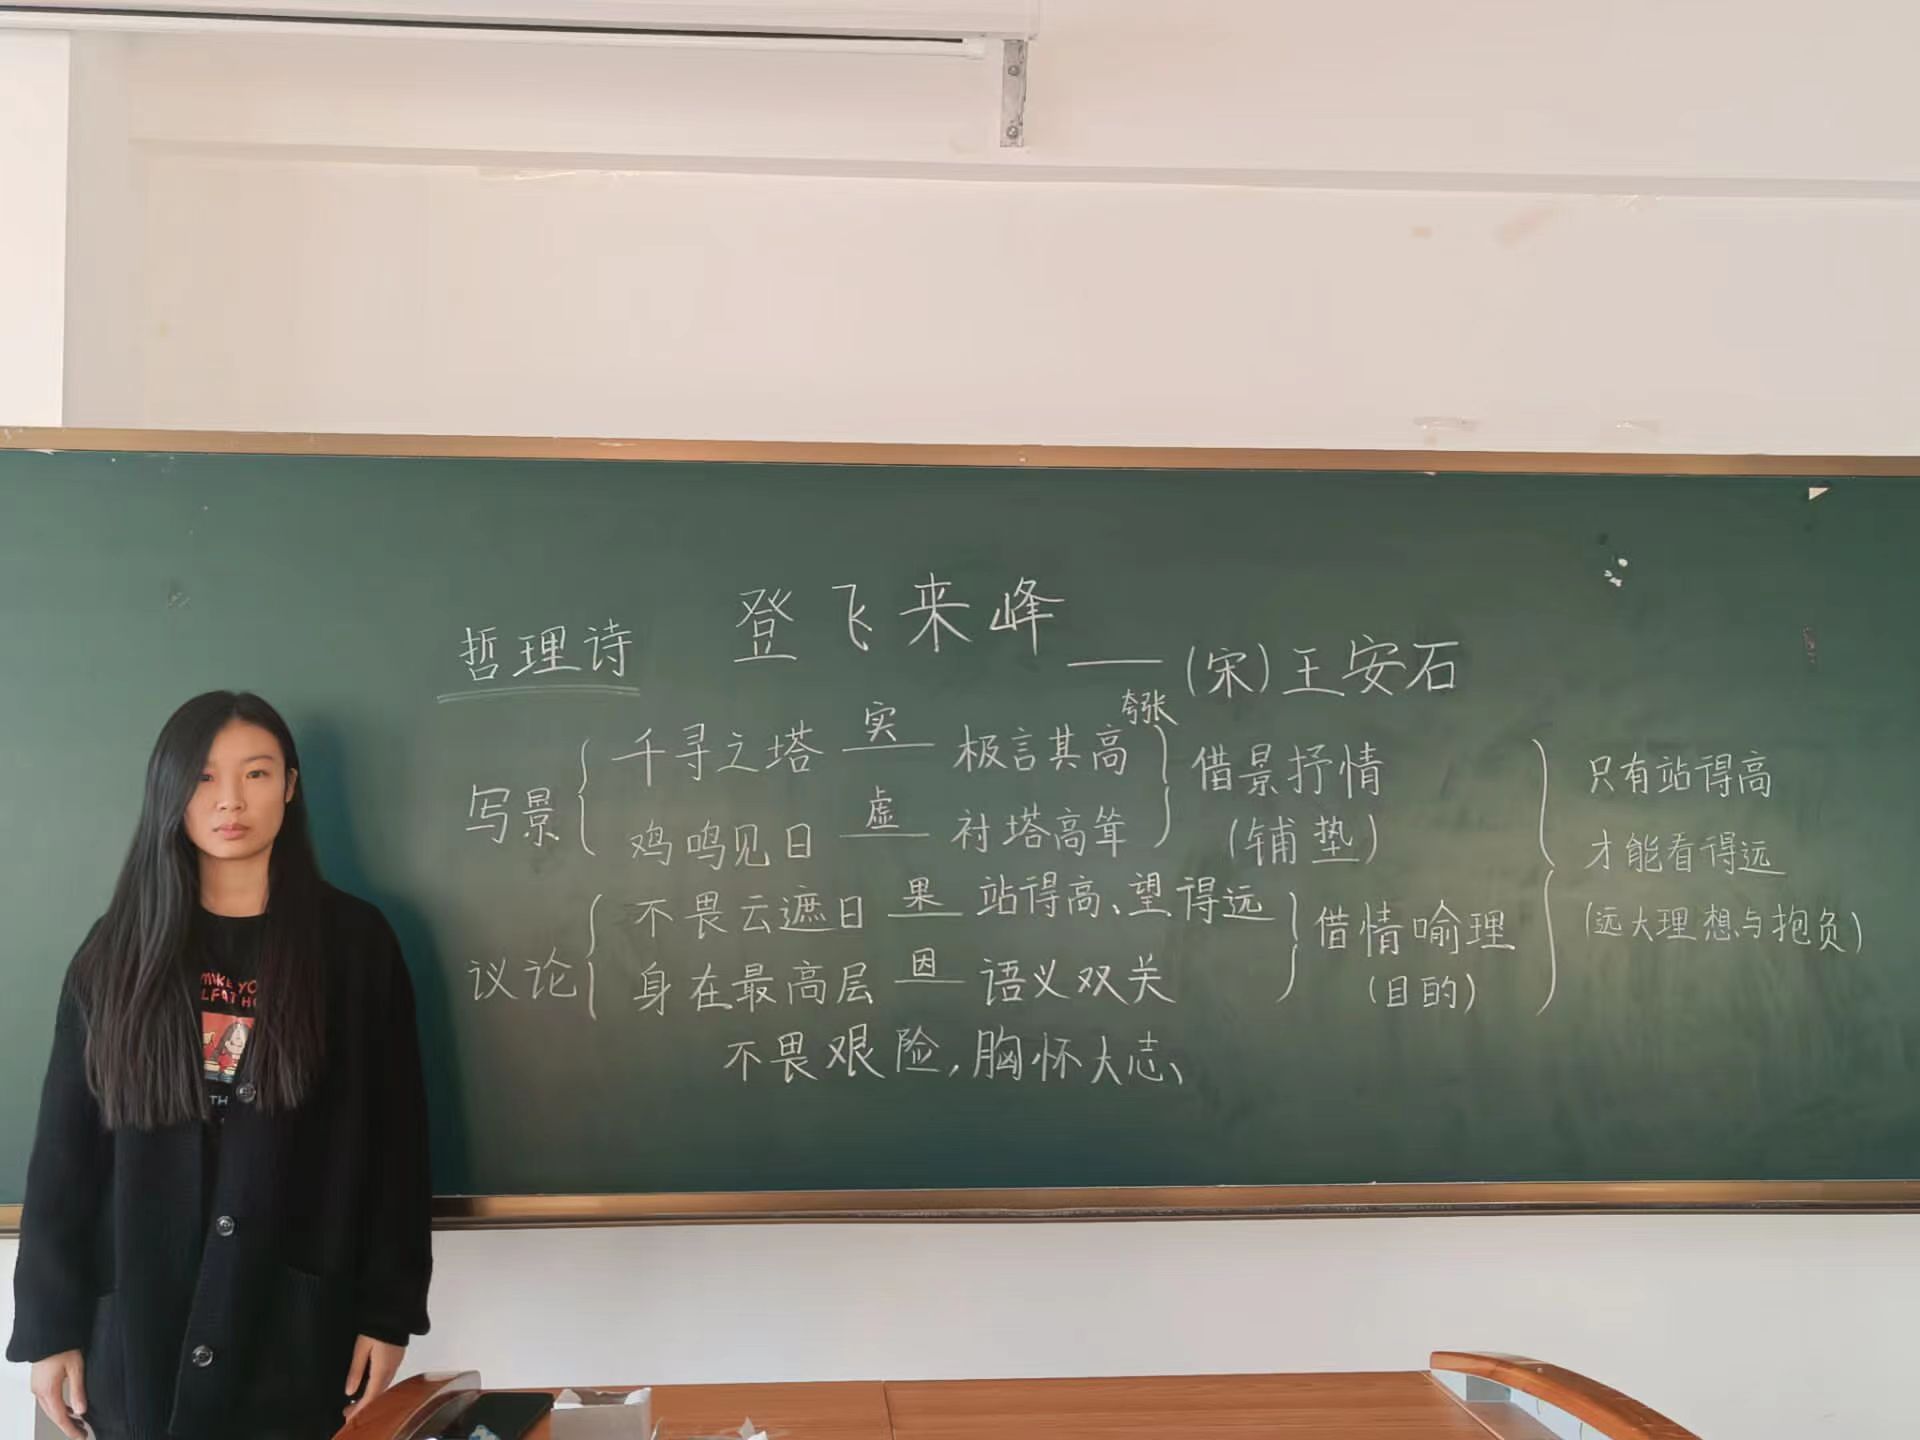 登飞来峰
哲理诗 —— (宋) 王安石
写景
千寻之塔 实 极言其高 夸张
鸡鸣见日 虚 衬塔高耸
借景抒情
(铺垫)
议论
不畏云遮日 果 站得高、望得远
身在最高层 因 语义双关
不畏艰险,胸怀大志、
借情喻理
(目的)
只有站得高
才能看得远
(远大理想与抱负)
MIKE YO
LFAT HO
TH